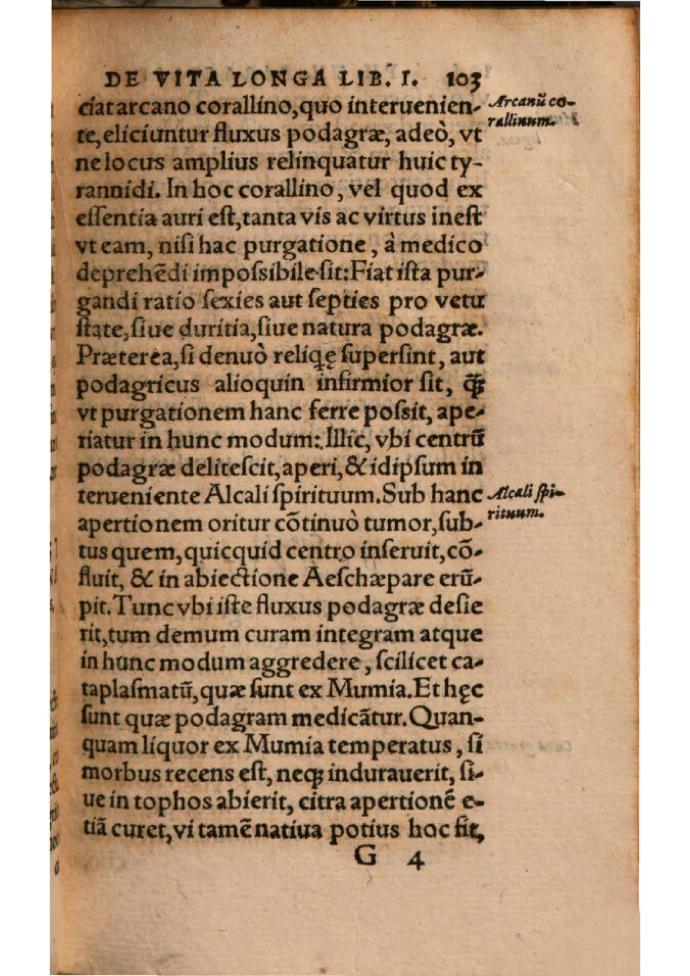 DE VITA LONGA LIB. I. 103
ciat arcano corallino, quo interuenien-
te, eliciuntur fluxus podagræ, adeò, vt
ne locus amplius relinquatur huic ty-
rannidi. In hoc corallino, vel quod ex
essentia auri est, tanta vis ac virtus inest
vt eam, nisi hac purgatione, à medico
deprehẽdi impossibile sit: Fiat ista pur-
gandi ratio sexies aut septies pro vetu
state, siue duritia, siue natura podagræ.
Præterea, si denuò reliqȩ supersint, aut
podagricus alioquin infirmior sit, q̃
vt purgationem hanc ferre possit, ape-
riatur in hunc modum: Illic, vbi centrũ
podagræ delitescit, aperi, & idipsum in
terueniente Alcali spirituum. Sub hanc
apertionem oritur cõtinuò tumor, sub-
tus quem, quicquid centro inseruit, cõ-
fluit, & in abiectione Aeschæpare erũ-
pit. Tunc vbi iste fluxus podagræ desie
rit, tum demum curam integram atque
in hunc modum aggredere, scilicet ca-
taplasmatũ, quæ sunt ex Mumia. Et hęc
sunt quæ podagram medicãtur. Quan-
quam liquor ex Mumia temperatus, si
morbus recens est, neqꝫ indurauerit, si-
ue in tophos abierit, citra apertionẽ e-
tiã curet, vi tamẽ natiua potius hoc fit,
G 4
Arcanũ co-
rallinum.
Alcali spi-
rituum.